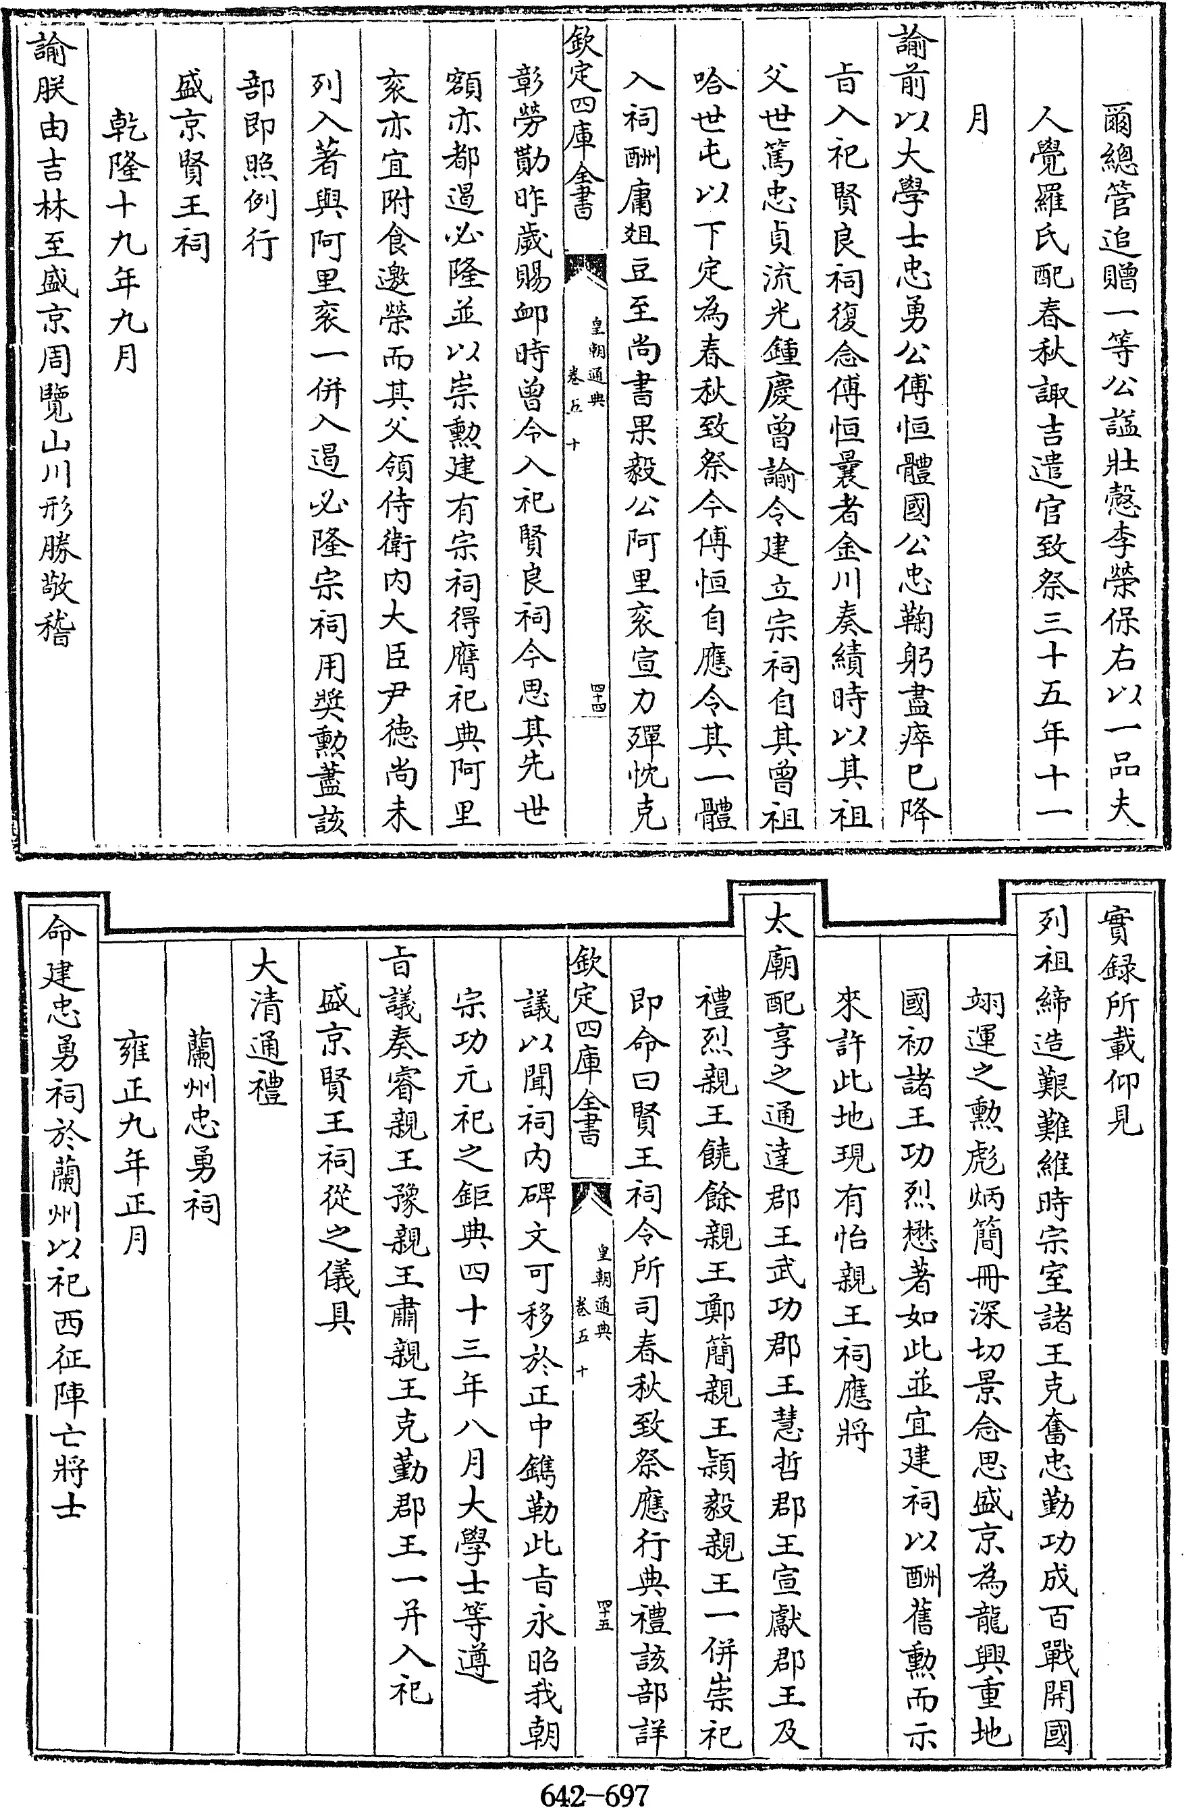 爾總管追贈一等公諡壯慤李榮保右以一品夫
人覺羅氏配春秋諏吉遣官致祭三十五年十一
月
諭前以大學士忠勇公傅恒體國公忠鞠躬盡瘁已降
旨入祀賢良祠復念傅恒曩者金川奏績時以其祖
父世篤忠貞流光鍾慶曾諭令建立宗祠自其曾祖
哈世屯以下定為春秋致祭今傅恒自應令其一體
入祠酬庸俎豆至尚書果毅公阿里衮宣力殫忱克
欽定四庫全書
皇朝通典
卷五十
四十四
彰勞勩昨歲賜卹時曾令入祀賢良祠今思其先世
額亦都遏必隆並以崇勲建有宗祠得膺祀典阿里
衮亦宜附食邀榮而其父領侍衛内大臣尹德尚未
列入著與阿里衮一併入遏必隆宗祠用奬勲藎該
部即照例行
盛京賢王祠
乾隆十九年九月
諭朕由吉林至盛京周覽山川形勝敬稽
實録所載仰見
列祖締造艱難維時宗室諸王克奮忠勤功成百戰開國
翊運之勲彪炳簡冊深切景念思盛京為龍興重地
國初諸王功烈懋著如此並宜建祠以酬舊勲而示
來許此地現有怡親王祠應將
太廟配享之通達郡王武功郡王慧哲郡王宣獻郡王及
禮烈親王饒餘親王鄭簡親王頴毅親王一併崇祀
即命曰賢王祠令所司春秋致祭應行典禮該部詳
欽定四庫全書
皇朝通典
卷五十
四十五
議以聞祠内碑文可移於正中鐫勒此旨永昭我朝
宗功元祀之鉅典四十三年八月大學士等遵
旨議奏睿親王豫親王肅親王克勤郡王一并入祀
盛京賢王祠從之儀具
大清通禮
蘭州忠勇祠
雍正九年正月
命建忠勇祠於蘭州以祀西征陣亡將士
642-697